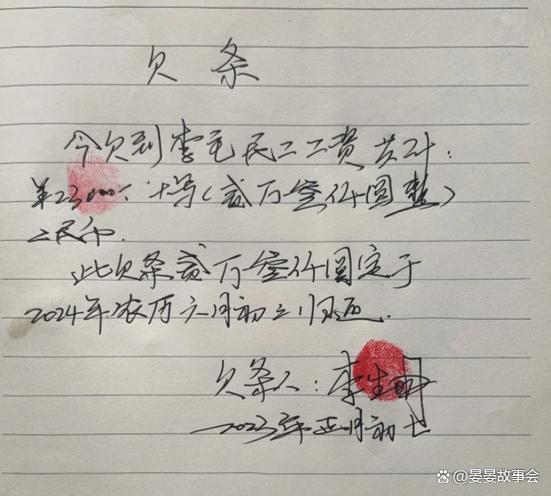 欠条
今欠到李毛民工工资共计:
¥23000: 大写(贰万叁仟圆整)
人民币.
此欠条贰万叁仟圆定于
2024年农历六月初 归还.
欠条人:李生
2023年正月初七
@晏晏故事会